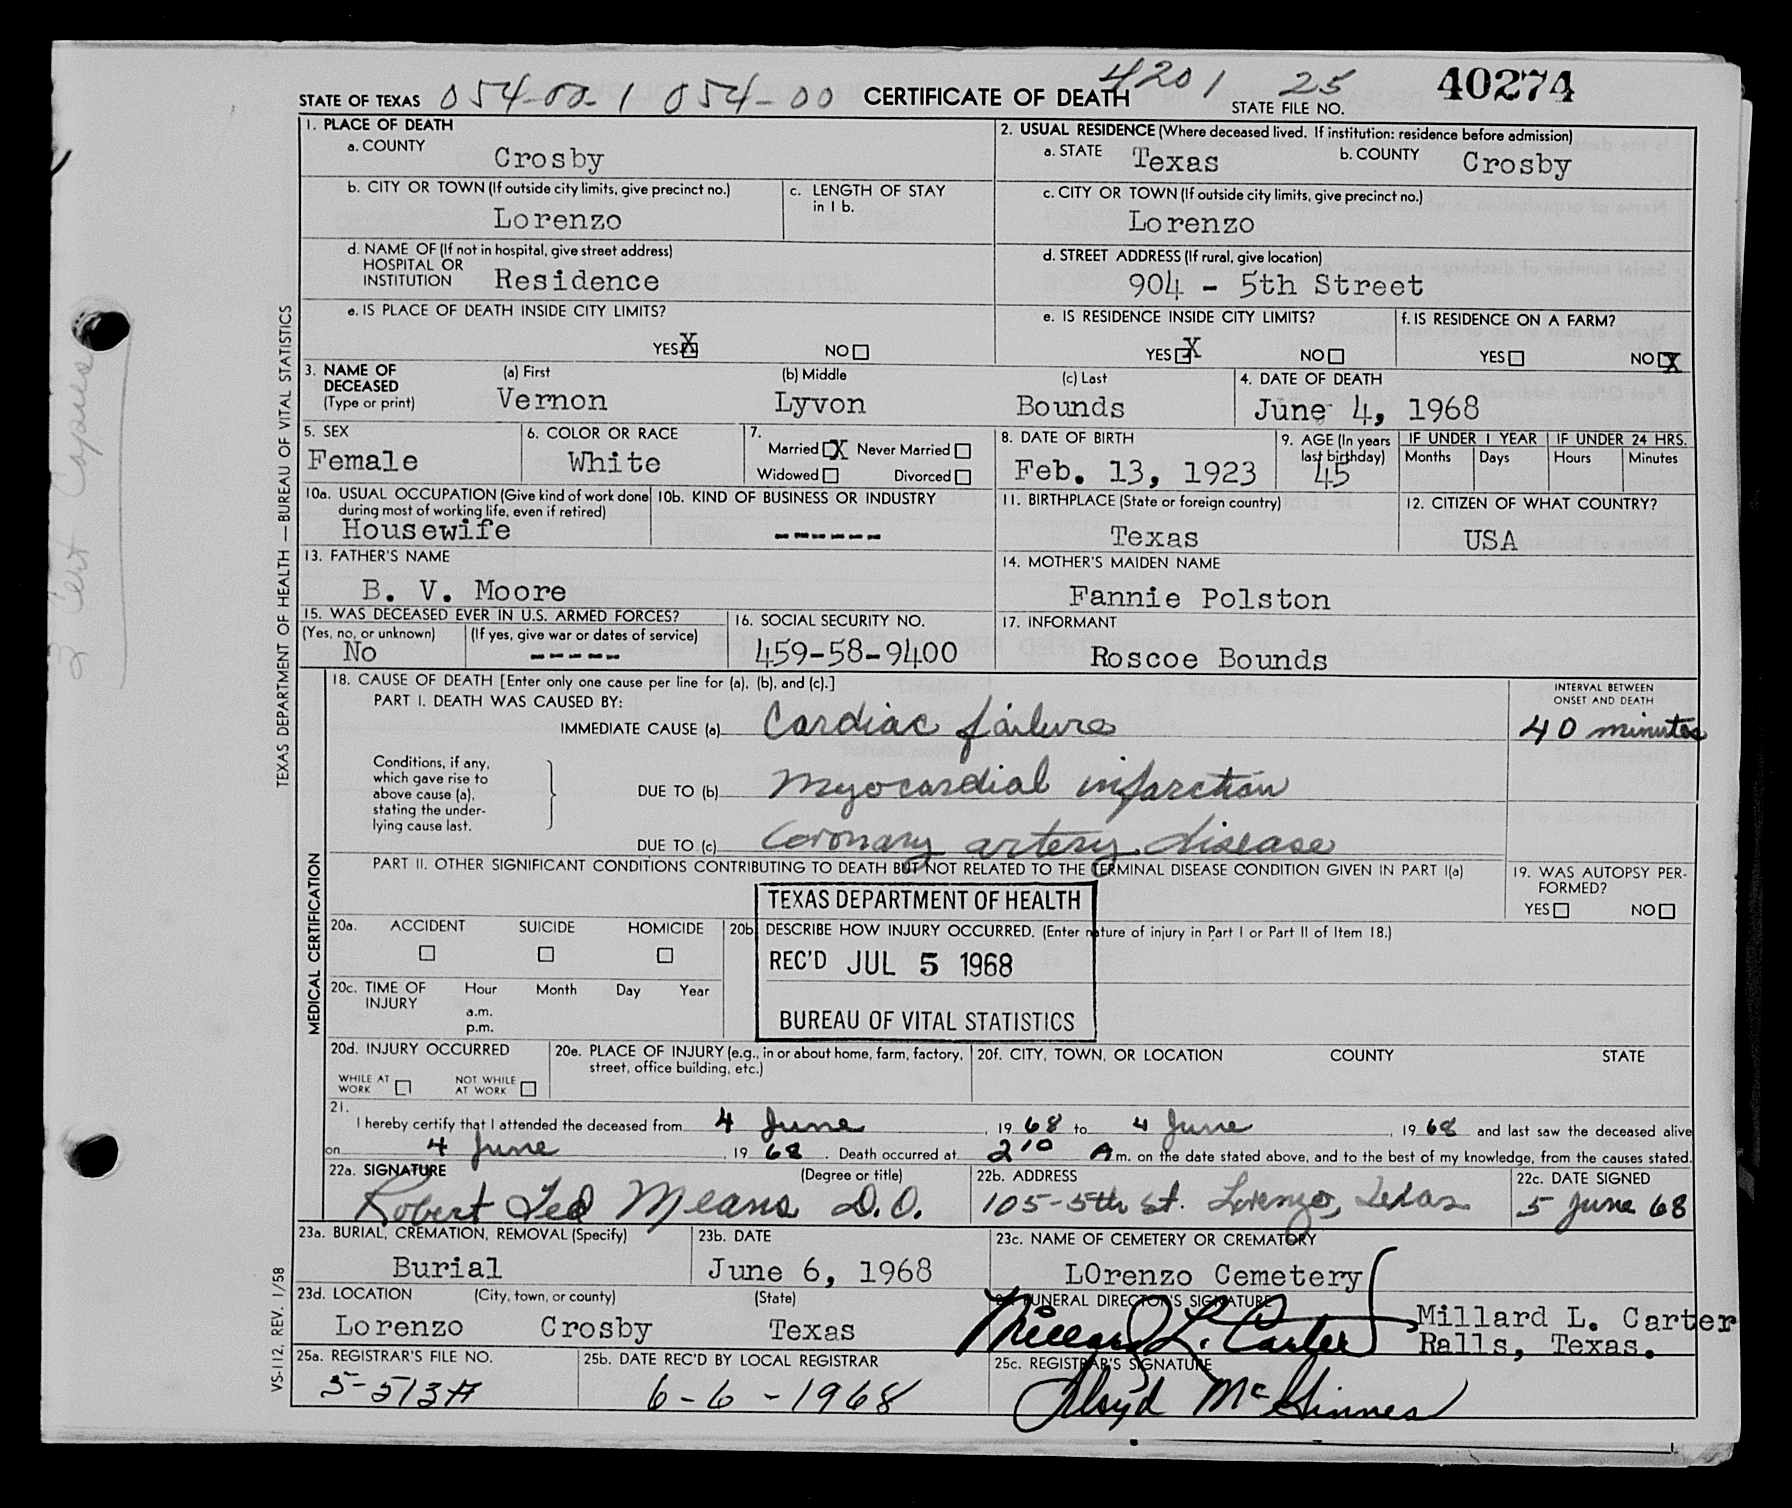 STATE OF TEXAS 054-00-1 054-00 CERTIFICATE OF DEATH 4201 25 STATE FILE NO. 40274
1. PLACE OF DEATH
a. COUNTY Crosby
2. USUAL RESIDENCE (Where deceased lived. If institution: residence before admission)
a. STATE Texas b. COUNTY Crosby
b. CITY OR TOWN (If outside city limits, give precinct no.) Lorenzo
c. LENGTH OF STAY in 1 b.
c. CITY OR TOWN (If outside city limits, give precinct no.) Lorenzo
d. NAME OF (If not in hospital, give street address)
HOSPITAL OR
INSTITUTION Residence
d. STREET ADDRESS (If rural, give location)
904 - 5th Street
e. IS PLACE OF DEATH INSIDE CITY LIMITS?
YES X NO
e. IS RESIDENCE INSIDE CITY LIMITS?
YES X NO
f. IS RESIDENCE ON A FARM?
YES NO X
3. NAME OF DECEASED (Type or print)
(a) First (b) Middle (c) Last
Vernon Lyvon Bounds
4. DATE OF DEATH
June 4, 1968
5. SEX
Female
6. COLOR OR RACE
White
7.
Married X Never Married
Widowed Divorced
8. DATE OF BIRTH
Feb. 13, 1923
9. AGE (In years last birthday)
45
IF UNDER 1 YEAR
Months Days
IF UNDER 24 HRS.
Hours Minutes
10a. USUAL OCCUPATION (Give kind of work done during most of working life, even if retired)
Housewife
10b. KIND OF BUSINESS OR INDUSTRY
------
11. BIRTHPLACE (State or foreign country)
Texas
12. CITIZEN OF WHAT COUNTRY?
USA
13. FATHER'S NAME
B. V. Moore
14. MOTHER'S MAIDEN NAME
Fannie Polston
15. WAS DECEASED EVER IN U.S. ARMED FORCES?
(Yes, no, or unknown) (If yes, give war or dates of service)
No -----
16. SOCIAL SECURITY NO.
459-58-9400
17. INFORMANT
Roscoe Bounds
18. CAUSE OF DEATH [Enter only one cause per line for (a), (b), and (c).]
INTERVAL BETWEEN ONSET AND DEATH
PART I. DEATH WAS CAUSED BY:
IMMEDIATE CAUSE (a) Cardiac failure 40 minutes
Conditions, if any,
which gave rise to
above cause (a),
stating the under-
lying cause last.
DUE TO (b) Myocardial infarction
DUE TO (c) Coronary artery disease
PART II. OTHER SIGNIFICANT CONDITIONS CONTRIBUTING TO DEATH BUT NOT RELATED TO THE TERMINAL DISEASE CONDITION GIVEN IN PART I(a)
19. WAS AUTOPSY PER-
FORMED?
YES NO
TEXAS DEPARTMENT OF HEALTH
REC'D JUL 5 1968
BUREAU OF VITAL STATISTICS
20a. ACCIDENT SUICIDE HOMICIDE
20b. DESCRIBE HOW INJURY OCCURRED. (Enter nature of injury in Part I or Part II of Item 18.)
20c. TIME OF INJURY
Hour Month Day Year
a.m.
p.m.
20d. INJURY OCCURRED
WHILE AT WORK NOT WHILE AT WORK
20e. PLACE OF INJURY (e.g., in or about home, farm, factory, street, office building, etc.)
20f. CITY, TOWN, OR LOCATION COUNTY STATE
21.
I hereby certify that I attended the deceased from 4 June, 1968 to 4 June, 1968 and last saw the deceased alive
on 4 June, 1968. Death occurred at 2:10 A m. on the date stated above, and to the best of my knowledge, from the causes stated.
22a. SIGNATURE (Degree or title)
Robert Ted Means D.O.
22b. ADDRESS
105-5th St. Lorenzo, Texas
22c. DATE SIGNED
5 June 68
23a. BURIAL, CREMATION, REMOVAL (Specify)
Burial
23b. DATE
June 6, 1968
23c. NAME OF CEMETERY OR CREMATORY
LOrenzo Cemetery
23d. LOCATION (City, town, or county) (State)
Lorenzo Crosby Texas
24. FUNERAL DIRECTOR'S SIGNATURE
Millard L. Carter
Millard L. Carter
Ralls, Texas.
25a. REGISTRAR'S FILE NO.
25b. DATE REC'D BY LOCAL REGISTRAR
6-6-1968
25c. REGISTRAR'S SIGNATURE
Floyd McGinnes
TEXAS DEPARTMENT OF HEALTH — BUREAU OF VITAL STATISTICS
MEDICAL CERTIFICATION
VS-112, REV. 1/58
Cert Copies